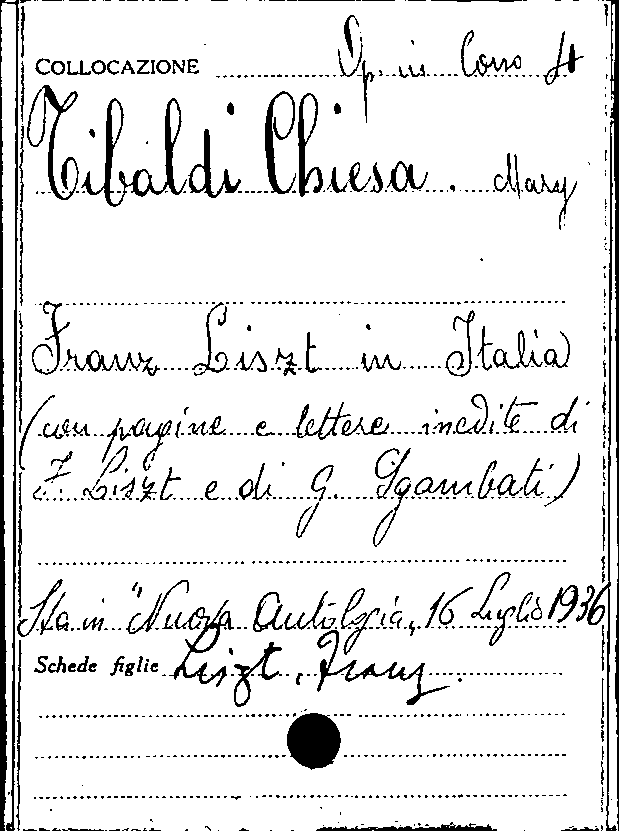 COLLOCAZIONE Op. in Corso St
Tibaldi Chiesa. Mary
Franz Liszt in Italia
(con pagine e lettere inedite di
F. Liszt e di G. Sgambati)
Sta in "Nuova Antologia, 16 Luglio 1936
Schede figlie Liszt, Franz.